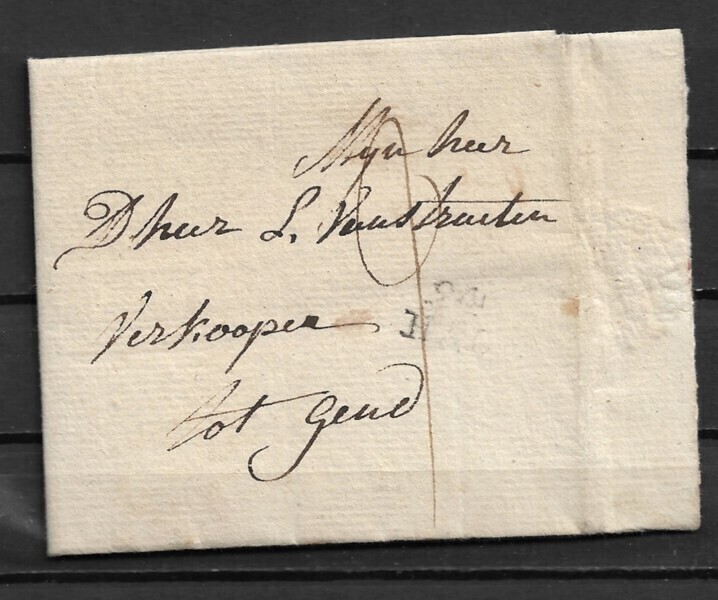 Myn heer
Dheer L. Vanstraeten
Verkooper
tot gend